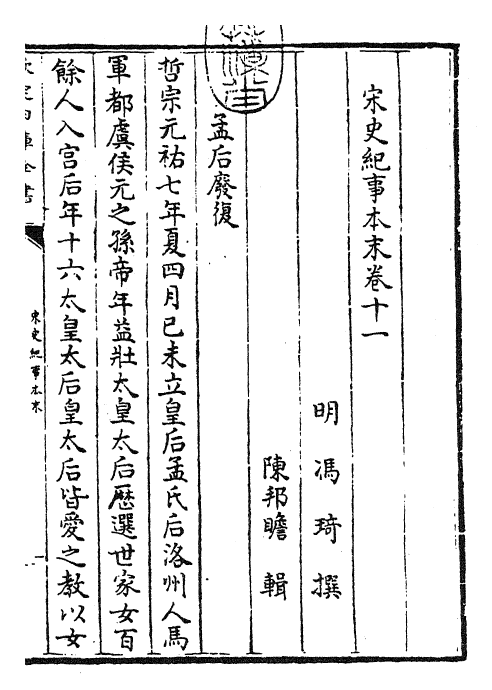 宋史紀事本末卷十一
明 馮琦 撰
陳邦瞻 輯
孟后廢復
哲宗元祐七年夏四月已未立皇后孟氏后洛州人馬
軍都虞侯元之孫帝年益壯太皇太后歷選世家女百
餘人入宫后年十六太皇太后皇太后皆愛之教以女
欽定四庫全書
宋史紀事本末
一